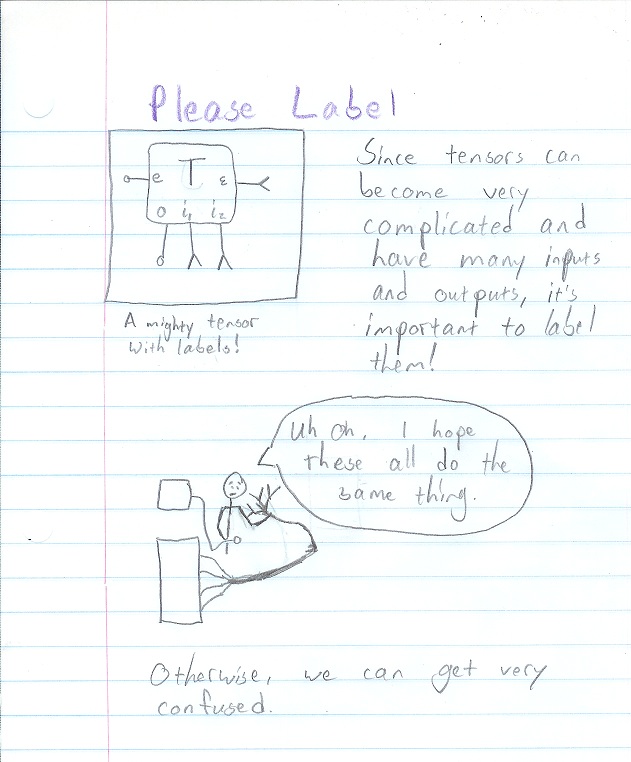 Please Label
e T ε
o i₁ i₂
A mighty tensor
with labels!
Since tensors can
become very
complicated and
have many inputs
and outputs, it's
important to label
them!
Uh Oh, I hope
these all do the
same thing.
Otherwise, we can get very
confused.